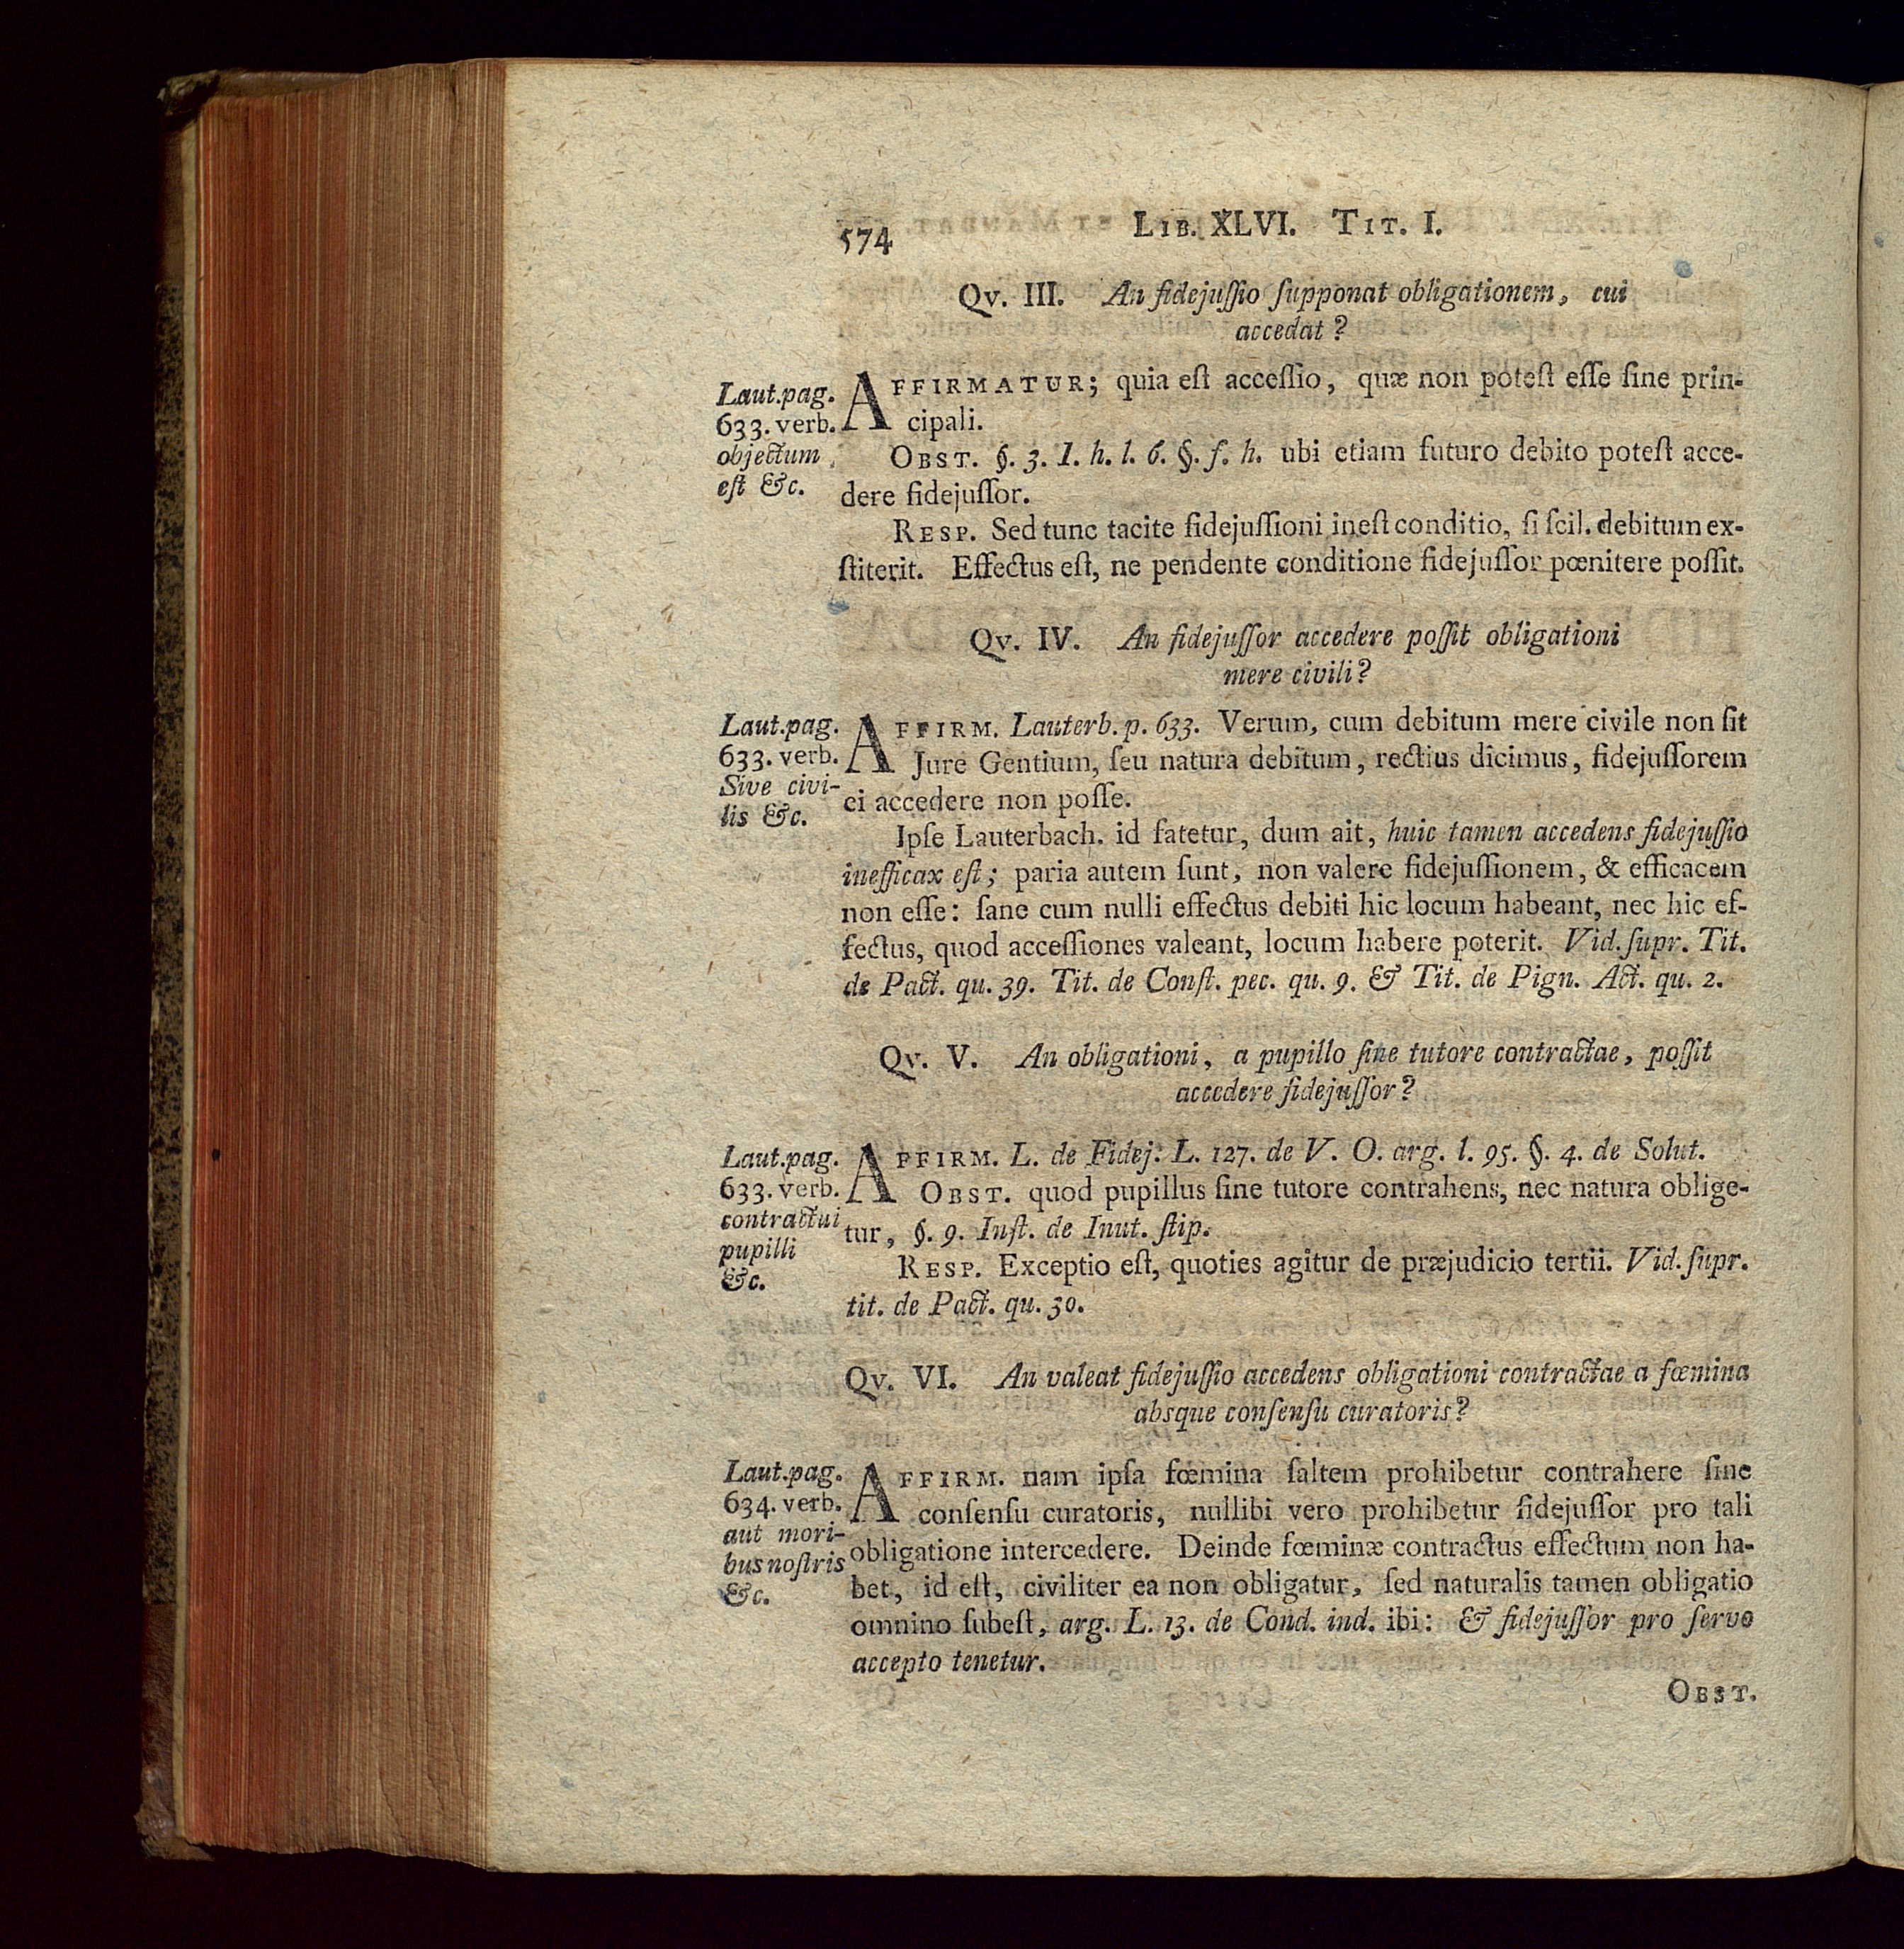 574
LIB. XLVI. TIT. I.
Qv. III. An fidejuſſio ſupponat obligationem, cui
accedat?
Laut. pag.
633. verb.
objectum
eſt &c.
AFFIRMATUR; quia eſt acceſſio, quæ non poteſt eſſe ſine prin-
cipali.
OBST. §. 3. I. h. l. 6. §. f. h. ubi etiam futuro debito poteſt acce-
dere fidejuſſor.
RESP. Sed tunc tacite fidejuſſioni ineſt conditio, ſi ſcil. debitum ex-
ſtiterit. Effectus eſt, ne pendente conditione fidejuſſor pœnitere poſſit.
Qv. IV. An fidejuſſor accedere poſſit obligationi
mere civili?
Laut. pag.
633. verb.
Sive civi-
lis &c.
AFFIRM. Lauterb. p. 633. Verum, cum debitum mere civile non ſit
Jure Gentium, ſeu natura debitum, rectius dicimus, fidejuſſorem
ei accedere non poſſe.
Ipſe Lauterbach. id fatetur, dum ait, huic tamen accedens fidejuſſio
inefficax eſt; paria autem ſunt, non valere fidejuſſionem, & efficacem
non eſſe: ſane cum nulli effectus debiti hic locum habeant, nec hic ef-
fectus, quod acceſſiones valeant, locum habere poterit. Vid. ſupr. Tit.
de Pact. qu. 39. Tit. de Conſt. pec. qu. 9. & Tit. de Pign. Act. qu. 2.
Qv. V. An obligationi, a pupillo ſine tutore contractae, poſſit
accedere fidejuſſor?
Laut. pag.
633. verb.
contractui
pupilli
&c.
AFFIRM. L. de Fidej. L. 127. de V. O. arg. l. 95. §. 4. de Solut.
OBST. quod pupillus ſine tutore contrahens, nec natura oblige-
tur, §. 9. Inſt. de Inut. ſtip.
RESP. Exceptio eſt, quoties agitur de præjudicio tertii. Vid. ſupr.
tit. de Pact. qu. 30.
Qv. VI. An valeat fidejuſſio accedens obligationi contractae a fœmina
absque conſenſu curatoris?
Laut. pag.
634. verb.
aut mori-
bus noſtris
&c.
AFFIRM. nam ipſa fœmina ſaltem prohibetur contrahere ſine
conſenſu curatoris, nullibi vero prohibetur fidejuſſor pro tali
obligatione intercedere. Deinde fœminæ contractus effectum non ha-
bet, id eſt, civiliter ea non obligatur, ſed naturalis tamen obligatio
omnino ſubeſt, arg. L. 13. de Cond. ind. ibi: & fidejuſſor pro ſervo
accepto tenetur.
OBST.